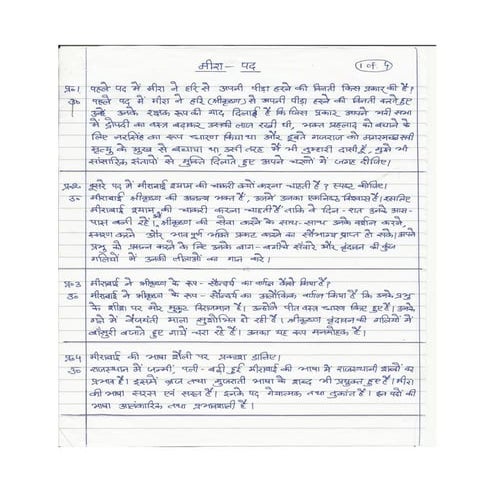 मीरा - पद
1 of 4
प्र०1 पहले पद में मीरा ने हरि से अपनी पीड़ा हरने की विनती किस प्रकार की है?
उ० पहले पद में मीरा ने हरि (श्रीकृष्ण) से अपनी पीड़ा हरने की विनती करते हुए
उन्हें उनके रक्षक रूप की याद दिलाई है कि जिस प्रकार आपने भरी सभा
में द्रौपदी का वस्त्र बढ़ाकर उसकी लाज रखी थी, भक्त प्रहलाद को बचाने के
लिए नरसिंह का रूप धारण किया था और डूबते गजराज को मगरमच्छ रूपी
मृत्यु के मुख से बचाया था उसी तरह मैं भी तुम्हारी दासी हूँ, मुझे भी
सांसारिक संतापों से मुक्ति दिलाते हुए अपने चरणों में जगह दीजिए।
प्र०2 दूसरे पद में मीराबाई श्याम की चाकरी क्यों करना चाहती हैं? स्पष्ट कीजिए।
उ० मीराबाई श्रीकृष्ण की अनन्य भक्त हैं, उनमें उनका एकनिष्ठ विश्वास है। इसलिए
मीराबाई श्याम की चाकरी करना चाहती हैं ताकि वे दिन-रात उनके आस-
पास बनी रहें। श्रीकृष्ण की सेवा करने के साथ-साथ उनके दर्शन करने,
स्मरण करने और भावपूर्ण भक्ति प्रकट करने का सौभाग्य प्राप्त हो सके। अपने
प्रभु को प्रसन्न करने के लिए उनके बाग-बगीचे संवारे और वृंदावन की कुंज
गलियों में उनकी लीलाओं का गान करे।
प्र०3 मीराबाई ने श्रीकृष्ण के रूप-सौन्दर्य का वर्णन कैसे किया है?
उ० मीराबाई ने श्रीकृष्ण के रूप-सौन्दर्य का अलौकिक वर्णन किया है कि उनके प्रभु
के शीश पर मोर मुकुट विराजमान है। उन्होंने पीत वस्त्र धारण किए हुए हैं। उनके
गले में वैजयंती माला सुशोभित हो रही है। श्रीकृष्ण वृंदावन की गलियों में
बाँसुरी बजाते हुए गायें चरा रहे हैं। उनका यह रूप मनमोहक है।
प्र०4 मीराबाई की भाषा शैली पर प्रकाश डालिए।
उ० राजस्थान में जन्मी, पली-बढ़ी हुई मीराबाई की भाषा में राजस्थानी शब्दों का
प्रभाव है। इसमें ब्रज तथा गुजराती भाषा के शब्द भी प्रयुक्त हुए हैं। मीरा
की भाषा सरस एवं सरल है। इनके पद गेयात्मक तथा तुकांत हैं। इन पदों की
भाषा अलंकारिक तथा प्रभावशाली है।